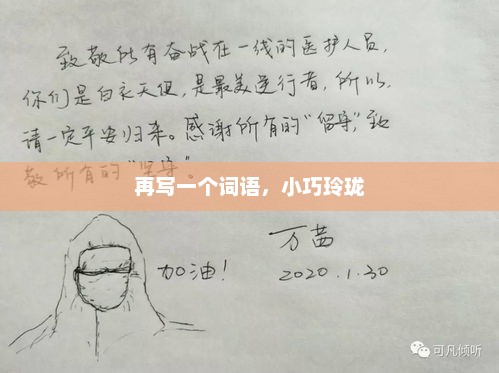 致敬所有奋战在一线的医护人员,
你们是白衣天使,是最美逆行者,所以,
请一定平安归来。感谢所有的“留守”,致
敬所有的“坚守”。
再写一个词语，小巧玲珑
万茜
加油!
2020.1.30
可凡倾听